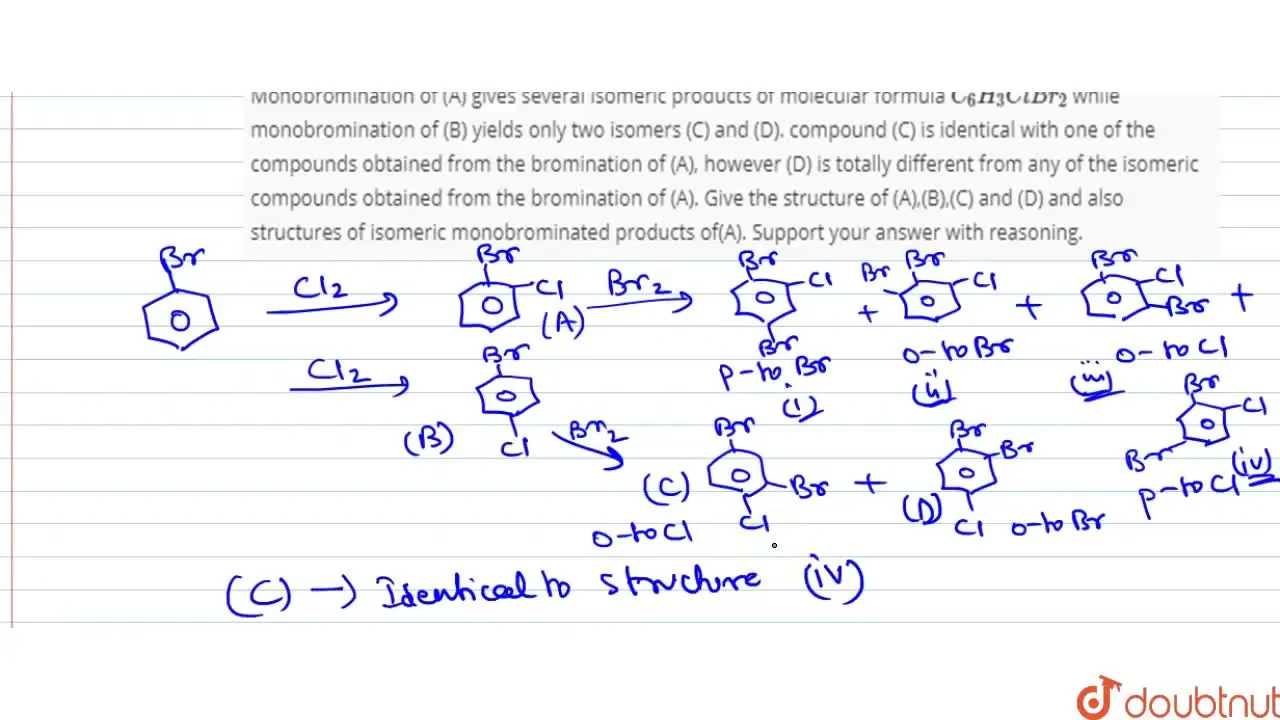 Monobromination of (A) gives several isomeric products of molecular formula C₆H₃ClBr₂ while
monobromination of (B) yields only two isomers (C) and (D). compound (C) is identical with one of the
compounds obtained from the bromination of (A), however (D) is totally different from any of the isomeric
compounds obtained from the bromination of (A). Give the structure of (A),(B),(C) and (D) and also
structures of isomeric monobrominated products of(A). Support your answer with reasoning.
Br Cl₂ Br Cl (A) Br₂ Br Cl Br + Br Br Cl + Br Cl Br +
p-to Br (i) o-to Br (ii) o-to Cl (iii)
Cl₂ Br Cl (B) Br₂ Br Cl Br (iv)
p-to Cl
(C) Br Br Cl + (D) Br Br Cl
o-to Cl o-to Br
(C) → Identical to structure (iv)
doubtnut